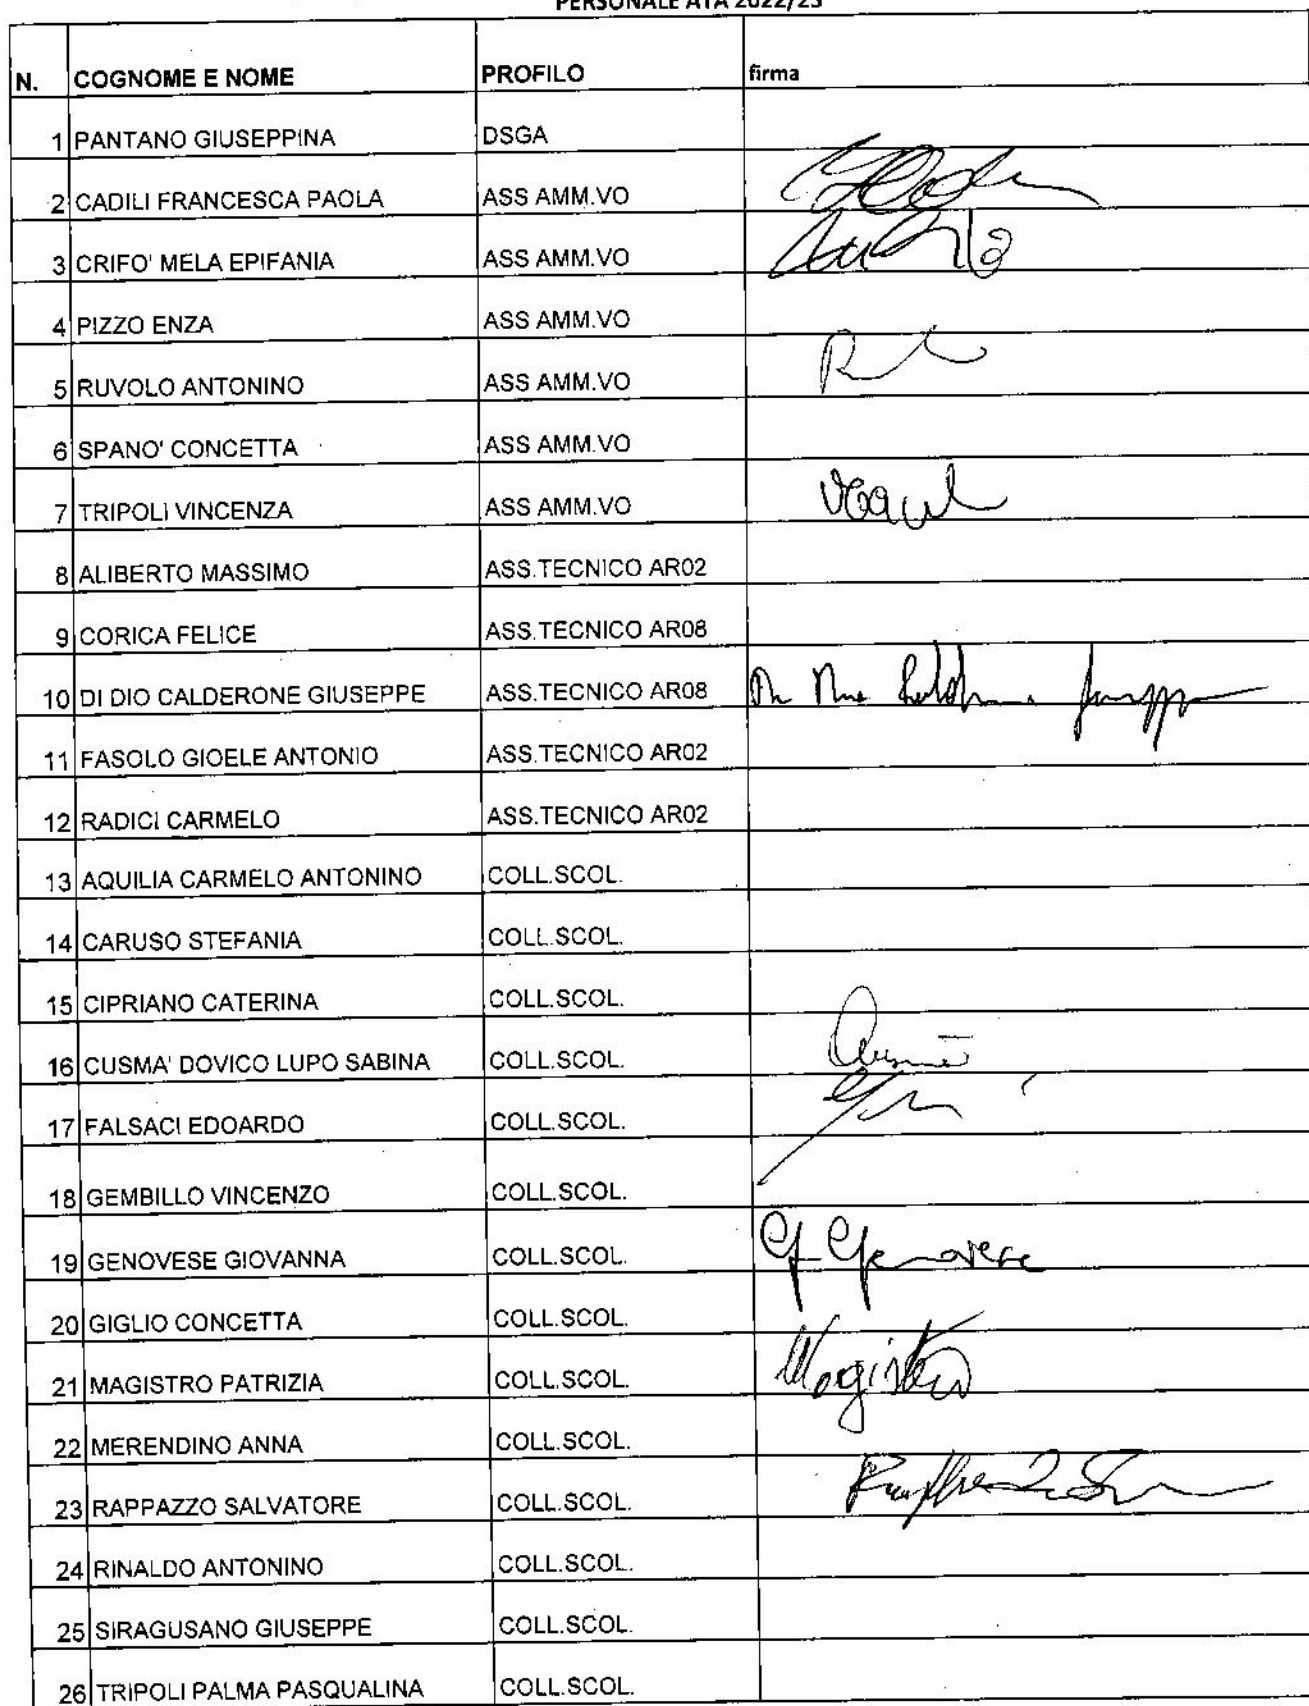 PERSONALE ATA 2022/23
N. COGNOME E NOME PROFILO firma
1 PANTANO GIUSEPPINA DSGA
2 CADILI FRANCESCA PAOLA ASS AMM.VO
3 CRIFO' MELA EPIFANIA ASS AMM.VO
4 PIZZO ENZA ASS AMM.VO
5 RUVOLO ANTONINO ASS AMM.VO
6 SPANO' CONCETTA ASS AMM.VO
7 TRIPOLI VINCENZA ASS AMM.VO
8 ALIBERTO MASSIMO ASS.TECNICO AR02
9 CORICA FELICE ASS.TECNICO AR08
10 DI DIO CALDERONE GIUSEPPE ASS.TECNICO AR08
11 FASOLO GIOELE ANTONIO ASS.TECNICO AR02
12 RADICI CARMELO ASS.TECNICO AR02
13 AQUILIA CARMELO ANTONINO COLL.SCOL.
14 CARUSO STEFANIA COLL.SCOL.
15 CIPRIANO CATERINA COLL.SCOL.
16 CUSMA' DOVICO LUPO SABINA COLL.SCOL.
17 FALSACI EDOARDO COLL.SCOL.
18 GEMBILLO VINCENZO COLL.SCOL.
19 GENOVESE GIOVANNA COLL.SCOL. G Genovese
20 GIGLIO CONCETTA COLL.SCOL.
21 MAGISTRO PATRIZIA COLL.SCOL. Magistro
22 MERENDINO ANNA COLL.SCOL.
23 RAPPAZZO SALVATORE COLL.SCOL.
24 RINALDO ANTONINO COLL.SCOL.
25 SIRAGUSANO GIUSEPPE COLL.SCOL.
26 TRIPOLI PALMA PASQUALINA COLL.SCOL.